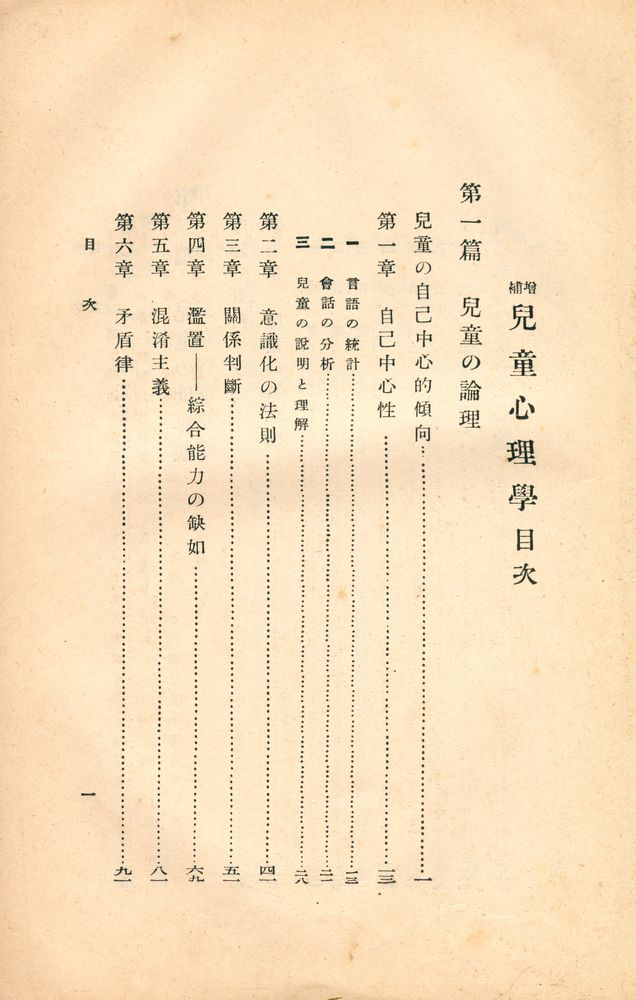 增補 兒童心理學目次
第一篇 兒童の論理
兒童の自己中心的傾向……一
第一章 自己中心性……一三
一 言語の統計……一三
二 會話の分析……二一
三 兒童の說明と理解……二八
第二章 意識化の法則……四一
第三章 關係判斷……五一
第四章 濫置——綜合能力の缺如……六九
第五章 混淆主義……八一
第六章 矛盾律……九一
目次
一